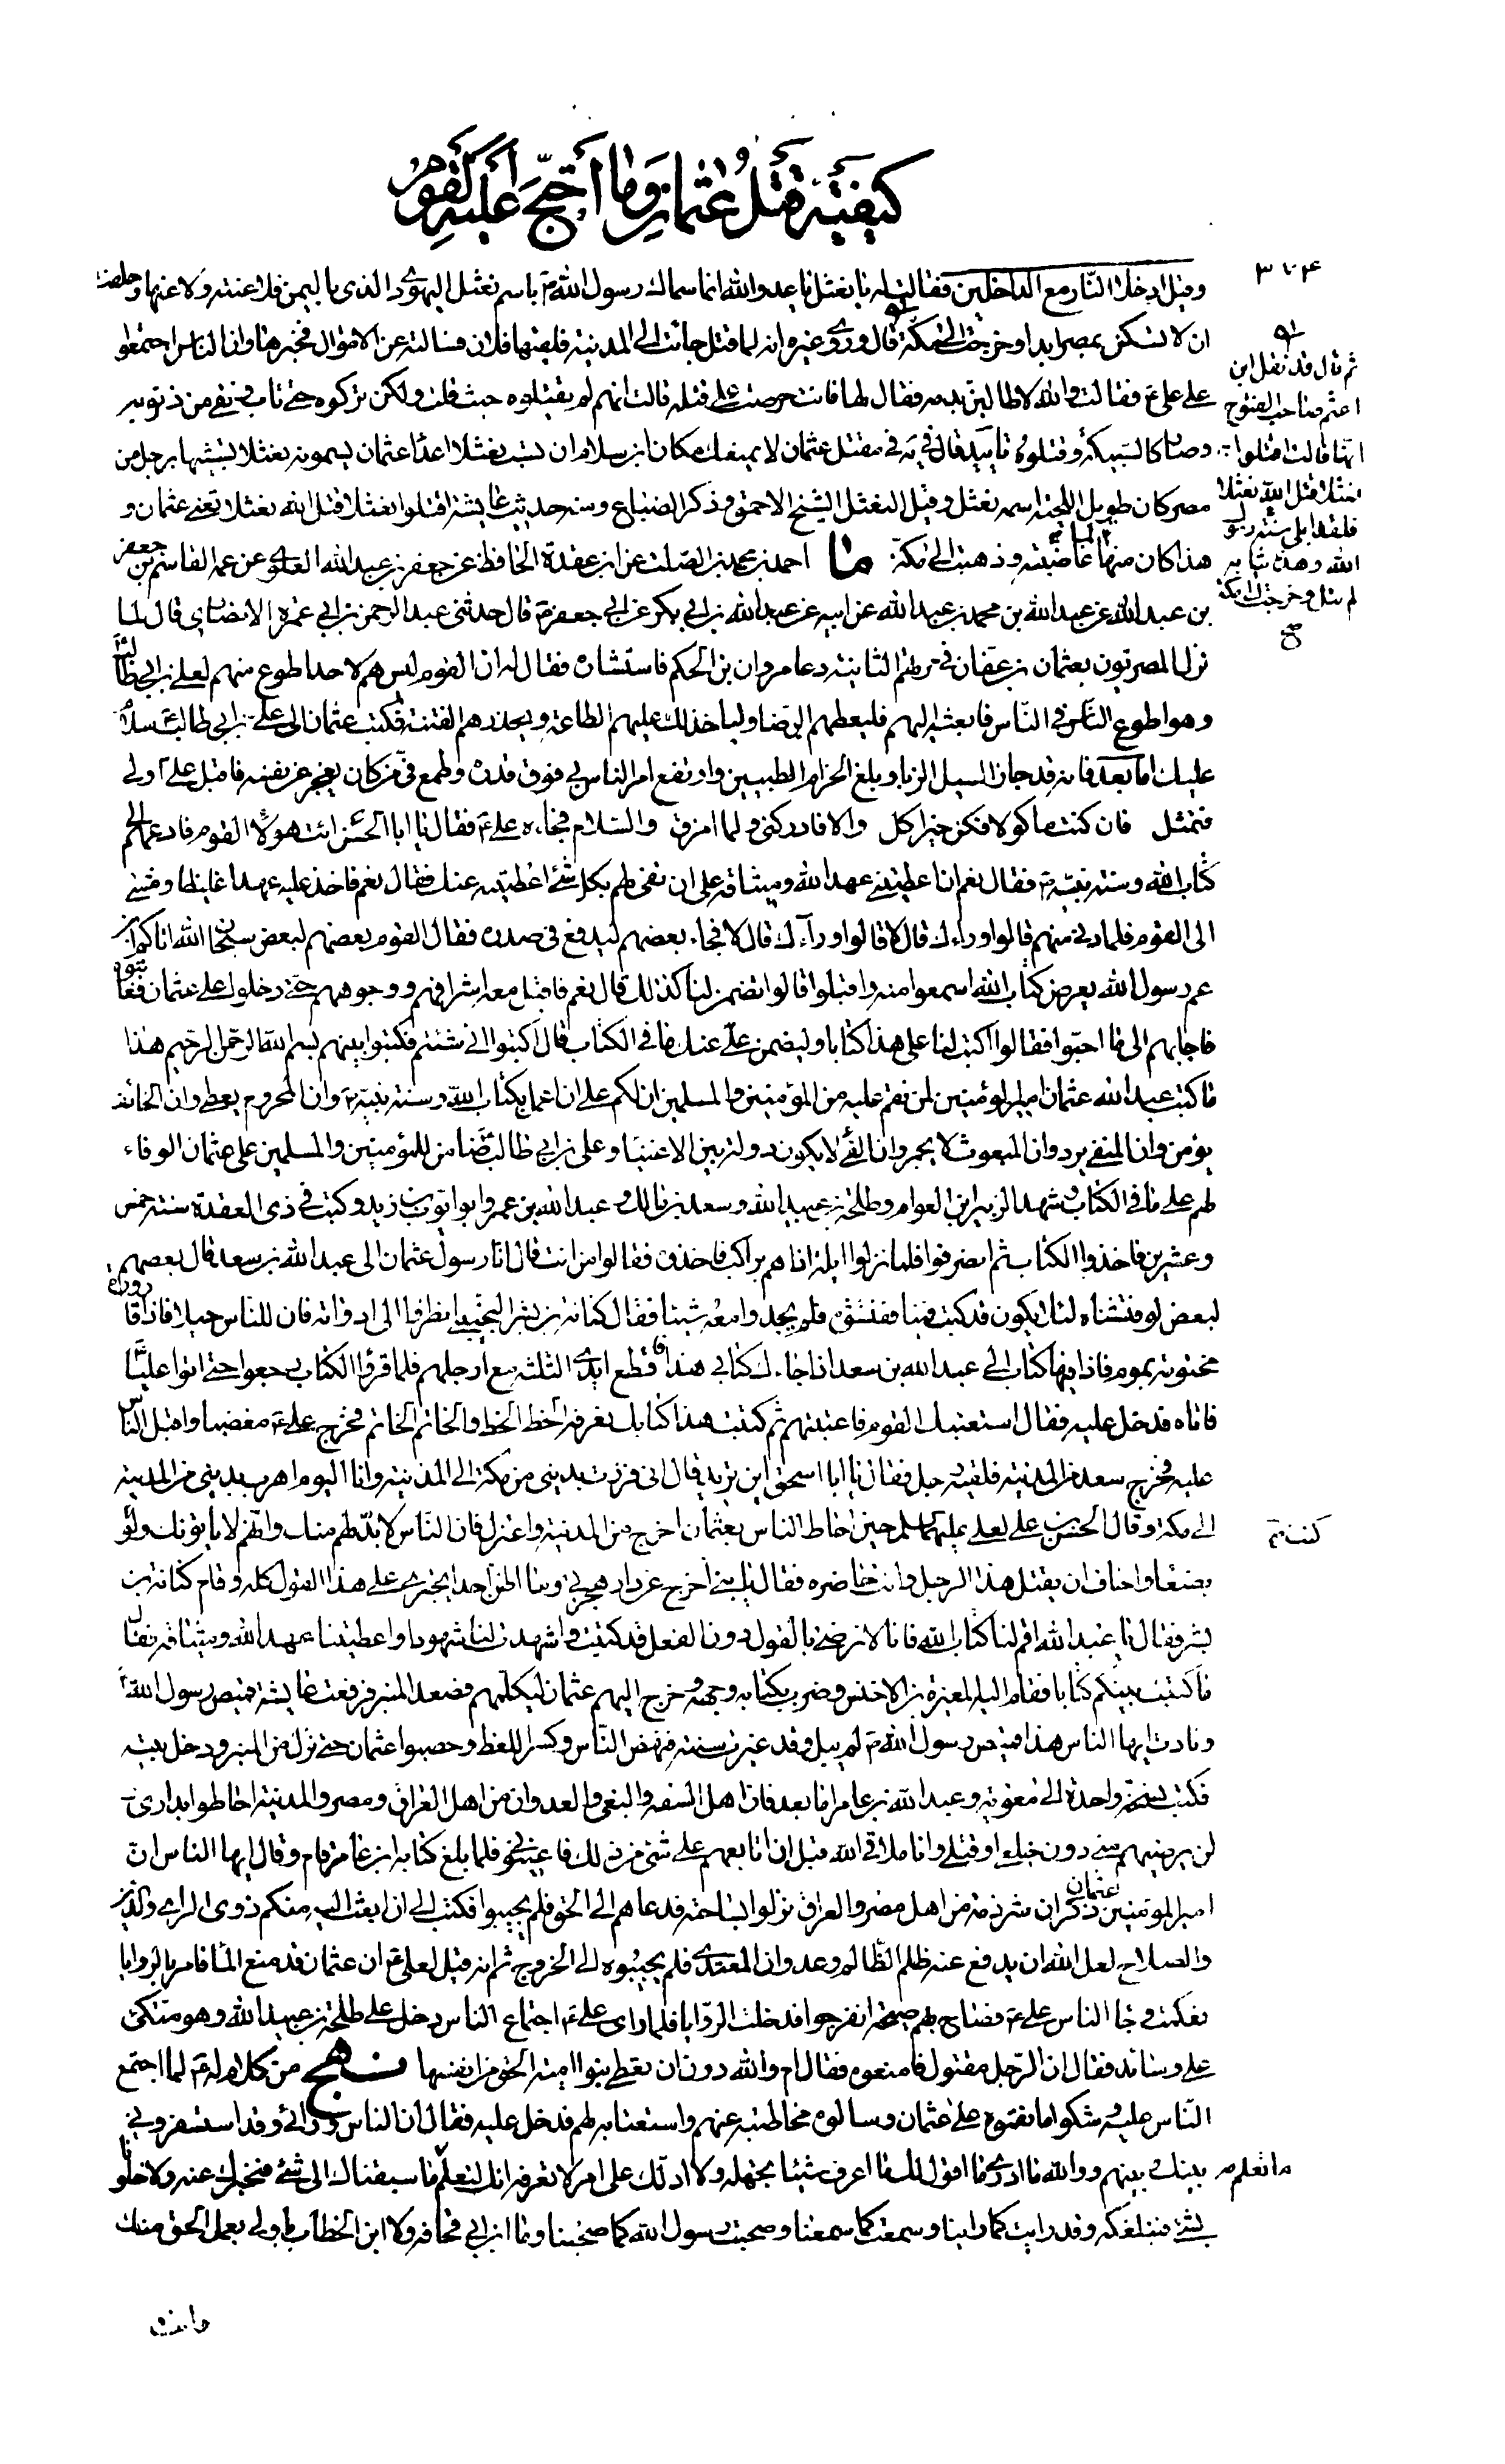 كيفية قتل عثمان وما احتج عليه القوم
٣٧٤
وقيل ادخلا النار مع الداخلين فقالت له يا نعثل يا عدو الله انما سماك رسول الله ص باسم نعثل اليهودي الذي باليمن فلاعنته ولاعنها وحلفت
ان لا تساكنه بمصر ابدا وخرجت الى مكة قال وروى غيره انه لما قتل جائت الى المدينة فلقيها فلان فسالته عن الاحوال فخبرها وان الناس اجتمعوا
على علي ع فقالت والله لاطالبن بدمه فقال لها فانت حرصت على قتله قالت انهم لم يقتلوه حيث قلت ولكن تركوه حتى تاب ونقي من ذنوبه
وصار كالسبيكة وقتلوه تأييد قال في يه في مقتل عثمان لا يمنعك مكان ابن سلام ان تسب نعثلا اعداء عثمان يسمونه نعثلا تشبيها برجل من
مصر كان طويل اللحية اسمه نعثل وقيل النعثل الشيخ الاحمق وذكر الضباع ومنه حديث عايشة اقتلوا نعثلا قتل الله نعثلا تعني عثمان و
هذا كان منها لما غاضبته وذهبت الى مكة ما احمد بن محمد بن الصلت عن ابن عقدة الحافظ عن جعفر بن عبد الله العلوي عن عمه القاسم بن جعفر
بن عبد الله عن عبد الله بن محمد بن عبد الله عن ابيه عن عبد الله بن ابي بكر عن ابي جعفر ع قال حدثني عبد الرحمن بن ابي عمرة الانصاري قال لما
نزل المصريون بعثمان بن عفان في مرتهم الثانية دعا مروان بن الحكم فاستشاره فقال له ان القوم ليس هم لاحد اطوع منهم لعلي بن ابي طالب
وهو اطوع الناس في الناس فابعثه اليهم فليعطهم الرضا ولياخذ لك عليهم الطاعة ويحذرهم الفتنة فكتب عثمان الى علي بن ابي طالب سلام
عليك اما بعد فانه قد جاز السيل الزبا وبلغ الحزام الطبيين وارتفع امر الناس بي فوق قدره وطمع في من كان يعجز عن نفسه فاقبل علي اولي
فتمثل فان كنت ماكولا فكن خير اكل والا فادركني ولما امزق والسلام فجاءه علي ع فقال يا ابا الحسن ائت هؤلاء القوم فادعهم الى
كتاب الله وسنة نبيه ص فقال نعم ان اعطيتني عهد الله وميثاقه على ان تفي لهم بكل شئ اعطيته عنك فقال نعم فاخذ عليه عهدا غليظا ومشى
الى القوم فلما دنى منهم قالوا وراءك قال لا قالوا وراءك قال لا فجاء بعضهم ليدفع في صدره فقال القوم بعضهم لبعض سبحان الله اتاكم ابن
عم رسول الله يعرض كتاب الله اسمعوا منه واقبلوا قالوا تضمن لنا كذلك قال نعم فاقبل معه اشرافهم ووجوههم حتى دخلوا على عثمان فعاتبوه
فاجابهم الى ما احبوا فقالوا اكتب لنا على هذا كتابا وليضمن علي عنك ما في الكتاب قال اكتبوا انى شئتم فكتبوا بينهم بسم الله الرحمن الرحيم هذا
ما كتب عبد الله عثمان امير المؤمنين لمن نقم عليه من المؤمنين والمسلمين ان لكم علي ان اعمل بكتاب الله وسنة نبيه ص وان المحروم يعطى وان الخائف
يؤمن وان المنفي يرد وان المبعوث لا يجمر وان الفئ لا يكون دولة بين الاغنياء وعلي بن ابي طالب ضامن للمؤمنين والمسلمين على عثمان الوفاء
لهم على ما في الكتاب وشهد الزبير ابن العوام وطلحة بن عبيد الله وسعد بن مالك وعبد الله بن عمر وابو ايوب بن زيد وكتب في ذي القعدة سنة خمس
وعشرين فاخذوا الكتاب ثم انصرفوا فلما نزلوا ايلة اذا هم براكب فاخذوه فقالوا من انت قال انا رسول عثمان الى عبد الله بن سعد قال بعضهم
لبعض لو فتشناه لئلا يكون قد كتب فينا ففتشوه فلم يجدوا معه شيئا فقال كنانة بن بشر النجيبي انظروا الى ادواته فان للناس حيلا فاذا قارورة
مختومة بموم فاذا فيها كتاب الى عبد الله بن سعد اذا جاءك كتابي هذا فاقطع ايدي الثلثة مع ارجلهم فلما قرؤا الكتاب رجعوا حتى اتوا عليا
فاتاه فدخل عليه فقال استعتبك القوم فاعتبتهم ثم كتبت هذا كتابك نعرفه الخط الخط والخاتم الخاتم فخرج علي ع مغضبا واقبل الناس
عليه فخرج سعد من المدينة فلقيه رجل فقال يا ابا اسحق اين تريد قال اني فررت بديني من مكة الى المدينة وانا اليوم اهرب بديني من المدينة
الى مكة وقال الحسن بن علي لعلي عليهما السلم حين احاط الناس بعثمان اخرج من المدينة واعتزل فان الناس لا بد لهم منك وانهم لا ياتونك ولو
بصنعا واخاف ان يقتل هذا الرجل وانت حاضره فقال يا بني اخرج عن دار هجرتي وما اظن احدا يجترئ على هذا القول كله وقام كنانة بن
بشر فقال يا عبد الله اقم لنا كتاب الله فانا لا نرضى بالقول دون الفعل قد كتبت واشهدت لنا شهودا واعطيتنا عهد الله وميثاقه فقال
ما كتبت بينكم كتابا فقام اليه المغيرة بن الاخنس وضرب بكتابه وجهه وخرج اليهم عثمان ليكلمهم فصعد المنبر فرفعت عايشة قميص رسول الله ص
ونادت ايها الناس هذا قميص رسول الله ص لم يبل وقد غيرت سنته فنهض الناس وكثر اللغط وحصبوا عثمان حتى نزل من المنبر ودخل بيته
فكتب نسخة واحدة الى معوية وعبد الله بن عامر اما بعد فان اهل السفه والبغي والعدوان من اهل العراق ومصر والمدينة احاطوا بداري
لن يرضيهم مني دون خلعي او قتلي وانا ملاقي الله قبل ان اتابعهم على شئ من ذلك فاعينوني فلما بلغ كتابه ابن عامر قام وقال ايها الناس ان
امير المؤمنين عثمان ذكر ان شرذمة من اهل مصر والعراق نزلوا بساحته فدعاهم الى الحق فلم يجيبوا فكتب الي ان ابعث اليه منكم ذوي الراي والدين
والصلاح لعل الله ان يدفع عنه ظلم الظالم وعدوان المعتدي فلم يجيبوه الى الخروج ثم انه قيل لعلي ع ان عثمان قد منع الماء فامر بالروايا
فعكمت وجاء الناس علي ع فصاح بهم صيحة انفرجوا فدخلت الروايا فلما راى علي ع اجتماع الناس دخل على طلحة بن عبيد الله وهو متكئ
على وسائد فقال ان الرجل مقتول فامنعوه فقال ام والله دون ان تعطي بنو امية الحق من انفسها نهج من كلام له ع لما اجتمع
الناس عليه وشكوا ما نقموه على عثمان وسالوه مخاطبته عنهم واستعتابه لهم فدخل عليه فقال ان الناس ورائي وقد استسفروني
بينك وبينهم ووالله ما ادري ما اقول لك ما اعرف شيئا تجهله ولا ادلك على امر لا تعرفه انك لتعلم ما نعلم ما سبقناك الى شئ فنخبرك عنه ولا خلونا
بشئ فنبلغكه وقد رايت كما راينا وسمعت كما سمعنا وصحبت رسول الله كما صحبنا وما ابن ابي قحافة ولا ابن الخطاب باولى بعمل الحق منك
ثم قال قد نقل ابن
اعثم صاحب الفتوح
انها قالت اقتلوا
نعثلا قتل الله نعثلا
فلقد ابلى سنة رسول
الله وهذه ثيابه
لم تبل وخرجت الى مكة
صح
ما نعلم
وانت